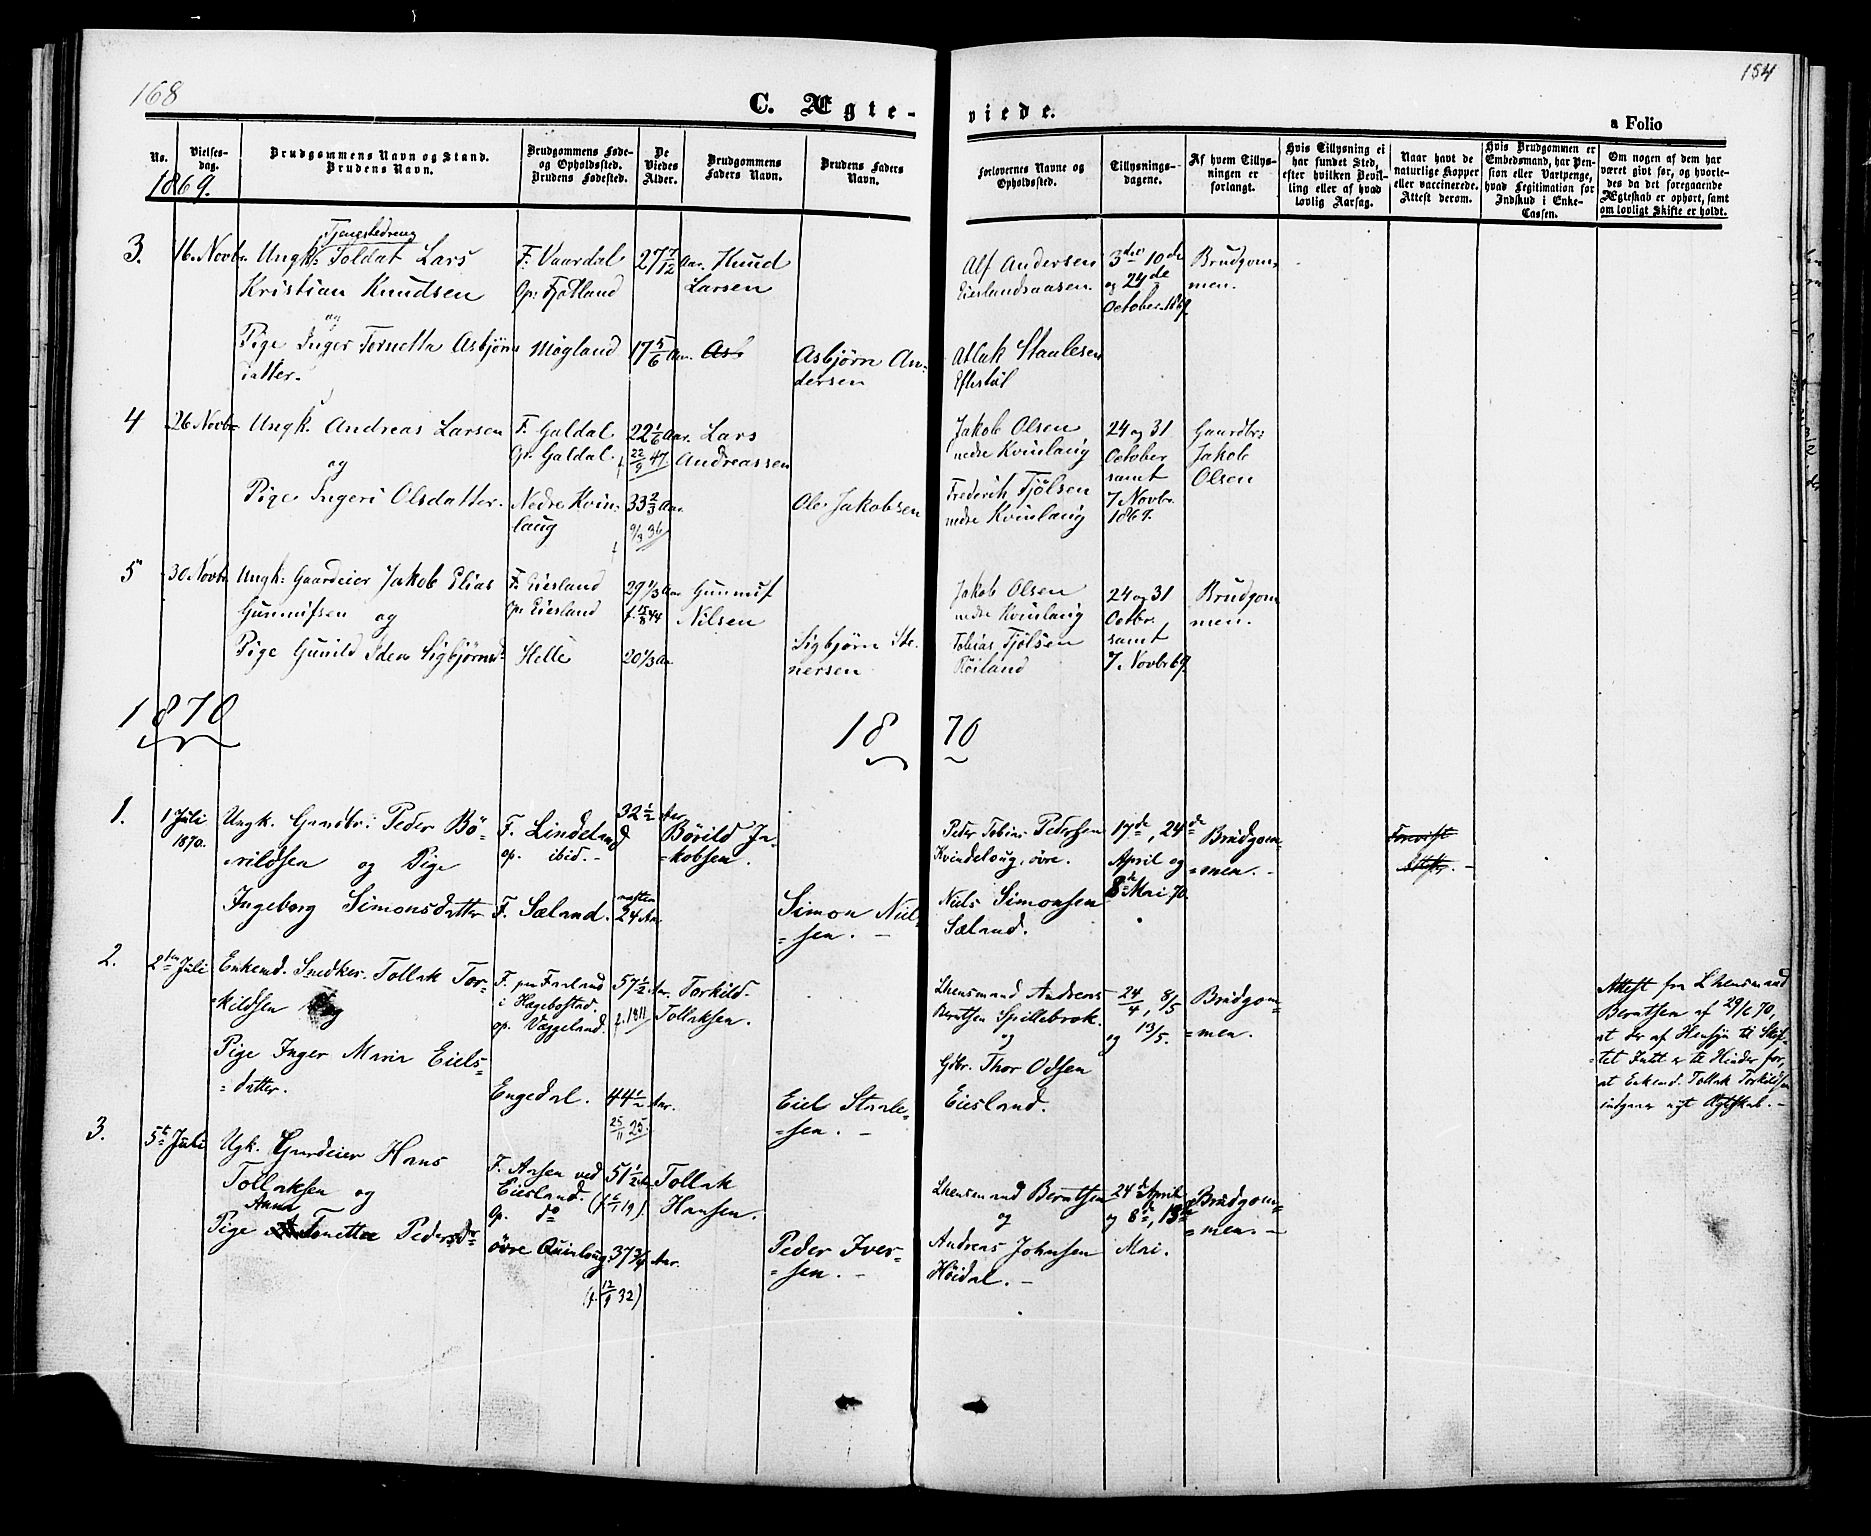 168
154
C. Ægte-
viede.
a Folio
No.
Vielses-
dag.
Brudgommens Navn og Stand.
Brudens Navn.
Brudgommens Føde-
og Opholdssted.
Brudens Fødested.
De
Viedes
Alder.
Brudgommens
Faders Navn.
Brudens Faders
Navn.
Forlovernes Navne og
Opholdssted.
Tillysnings-
dagene.
Af hvem Tillys-
ningen er
forlangt.
Hvis Tillysning ei
har fundet Sted,
efter hvilken Bevil-
ling eller af hvad
lovlig Aarsag.
Naar havt de
naturlige Kopper
eller vaccinerede.
Attest derom.
Hvis Brudgommen er
Embedsmand, har Pen-
sion eller Vartpenge,
hvad Legitimation for
Indskud i Enke-
Cassen.
Om nogen af dem har
været gift før, og hvorle-
des da det foregaaende
Ægteskab er ophørt, samt
om lovligt Skifte er holdt.
1869.
3.
16. Novbr.
Tjenestedreng
Ungk: Soldat Lars
Kristian Knudsen
og
Pige Inger Tornetta Asbjørns
datter.
F: Vaardal
Op: Fjotland
Mögland
27 7/12 Aar.
17 5/6 Aar.
Knud
Larsen
Asb
Asbjørn An-
dersen
Alf Andersen
Eieslandsaasen.
Atlak Staalesen
Eftestøl
3die 10de
og 24de
October 1869.
Brudgom-
men.
4
26 Novbr
Ungk. Andreas Larsen
og
Pige Ingeri Olsdatter.
F. Galdal
Op: Galdal.
Nedre Kvin-
laug
22 1/6 Aar.
f 22/9 47
33 2/3 Aar.
f 9/3 36
Lars
Andreassen
Ole Jakobsen
Jakob Olsen
nedre Kvinlaug
Frederik Tjølsen
nedre Kvinlaug
24 og 31
October
samt
7 Novbr.
1869.
Gaardbr:
Jakob
Olsen
5
30 Novbr.
Ungk: Gaardeier Jakob Elias
Gunnufsen og
Pige Gunild Sigbjørnsd:
F: Eiesland
Op: Eiesland
Helle
20 1/3 Aar
Gunnuf
Nilsen
Sigbjørn Ste-
nersen
Jakob Olsen
nedre Kvinlaug
Tobias Tjølsen
Röiland
24 og 31
Octbr.
samt
7. Novbr 69.
Brudgom
men.
1870
18 70
1.
1 Juli
1870.
Ungk. Gaardbr: Peder Bö-
rildsen og Pige
Ingeborg Simonsdatter
F. Lindeland
op. ibid. -
F. Sæland.
32 1/2 Aar.
næsten
24 Aar
Börild Ja-
=kobsen.
Simon Niel-
=sen. -
Peder Tobias Pedersen
Kvindeloug, övre.
Niels Simonsen
Sæland.
17de, 24de
April og
8de Mai 70.
Brudgom-
=men. -
Forevist
Attest. -
2.
2den Juli
Enkemd. Snedker. Tollak Tor-
=kildsen og
Pige Inger Maria Eiels-
=datter.
F. paa Faaland
i Hægebostad.
op. Væggeland.
Engedal.
57 1/2 Aar.
f. 1811
44 1/2 Aar.
25/11 25.
Torkild
Tollaksen.
Eiel Staale-
=sen. -
Lhensmand Andreas
Berntsen Spillebrok.
og
Gdbr. Thor Odsen
Eiesland.
24/4, 8/5
og 13/5.
Brudgom-
=men.
Attest fra Lhensmand
Berntsen af 29/6 70,
at der af Hensyn til Skif-
=tet Intt er til Hinder for,
at Enkemd. Tollak Torkildsen
indgaar nyt Ægteskab. -
3.
5te Juli
Ugk. Gaardeier Hans
Tollaksen og
Anna
Pige Tonette Pedersdr
F. Aasen ved
Eiesland.
Op. do
övre Quinloug
51 1/2 Aar
37 3/4 Aar.
(f. 12/9 32)
Tollak
Hansen.
Peder Iver-
=sen. -
Lhensmand Berntsen
og
Andreas Johnsen
Höidal. -
24de April
og 8de, 13de
Mai.
Brudgom-
=men. -